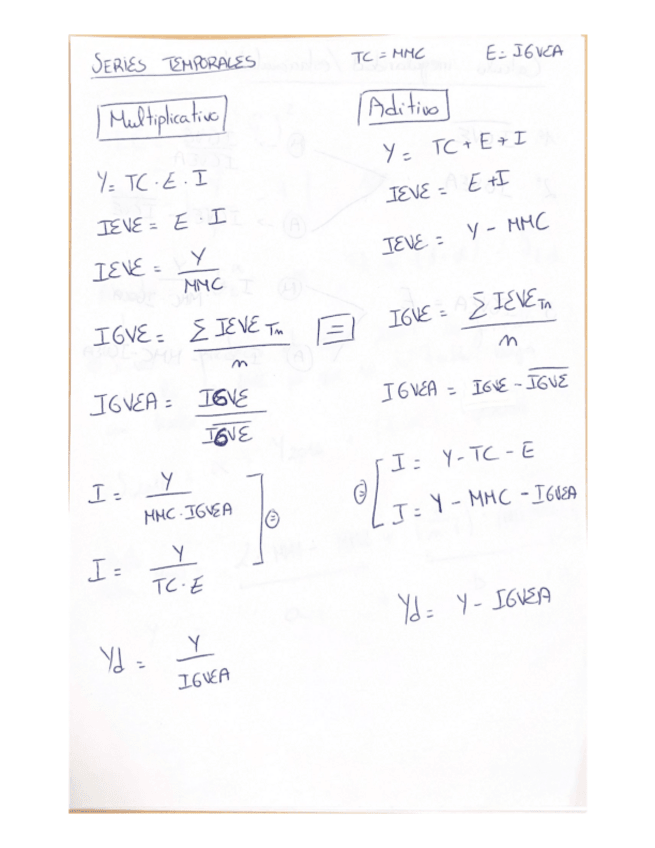 SERIES TEMPORALES TC = MMC E = IGVEA
Multiplicativo
Y = TC · E · I
IEVE = E · I
IEVE = Y / MMC
IGVE = Σ IEVE Tn / n =
IGVEA = IGVE / \overline{IGVE}
I = Y / MMC · IGVEA
=
I = Y / TC · E
Yd = Y / IGVEA
Aditivo
Y = TC + E + I
IEVE = E + I
IEVE = Y - MMC
IGVE = Σ IEVE Tn / n
IGVEA = IGVE - \overline{IGVE}
= I = Y - TC - E
I = Y - MMC - IGVEA
Yd = Y - IGVEA